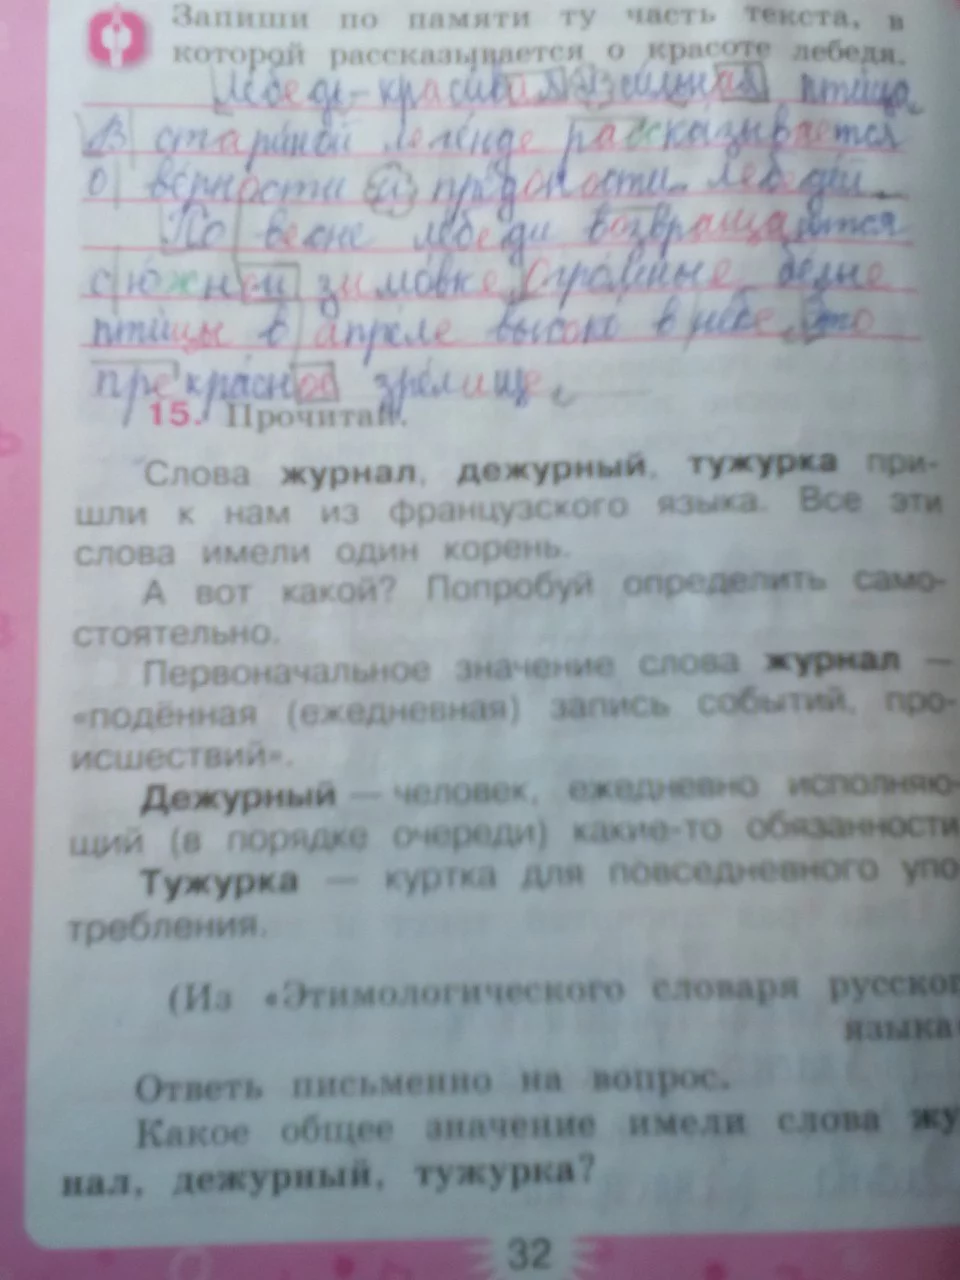 Запиши по памяти ту часть текста, в
которой рассказывается о красоте лебедя.
Лебедь - красивая и сильная птица.
В старинной легенде рассказывается
о верности и преданности лебедей.
По весне лебеди возвращаются
с южной зимовке. Стройные, белые
птицы в апреле высоко в небе, это
прекрасное зрелище.
15. Прочитай.
Слова журнал, дежурный, тужурка при-
шли к нам из французского языка. Все эти
слова имели один корень.
А вот какой? Попробуй определить само-
стоятельно.
Первоначальное значение слова журнал —
«подённая (ежедневная) запись событий, про-
исшествий».
Дежурный — человек, ежедневно исполняю-
щий (в порядке очереди) какие-то обязанности
Тужурка — куртка для повседневного упо
требления.
(Из «Этимологического словаря русског
языка
Ответь письменно на вопрос.
Какое общее значение имели слова жу
нал, дежурный, тужурка?
32